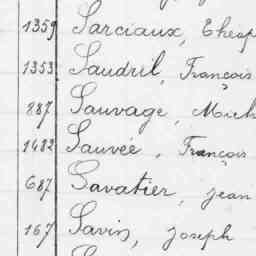 1359 Sarciaux, Theop
1353 Saudril, François
887 Sauvage, Mich
1482 Sauvée, François
687 Savatier, jean
167 Savin, joseph